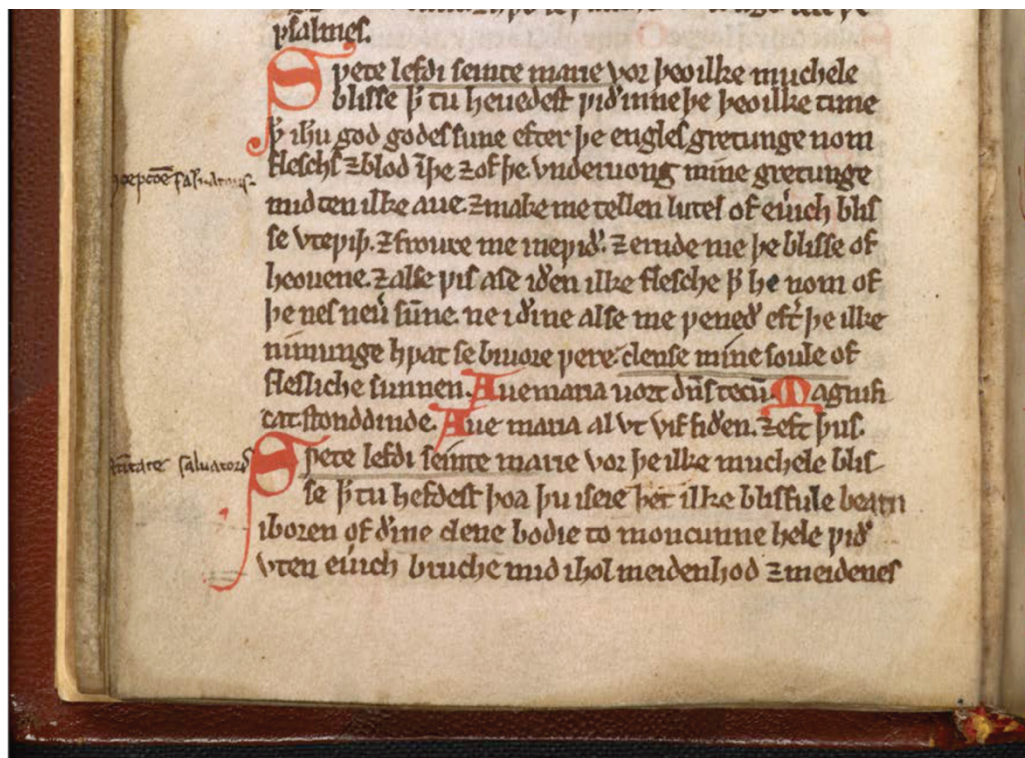 psalmes.
Swete lefdi seinte marie vor þeo ilke muchele
blisse ꝥ tu hevedest wið inne þe þeo ilke time
ꝥ ihu god godes sune efter þe engles gretunge nom
flesch ⁊ blod ī þe ⁊ of þe. vnderuong mine gretunge
mid ten ilke aue. ⁊ make me tellen lutel of eu͛ich blis
se vtewiþ. ⁊ froure me inewið. ⁊ ernde me þe blisse of
heouene. ⁊ alse wis ase iðen ilke flesche ꝥ he nom of
þe nes neu͛ sūne. ne i ðine alse me weneð eft͛ þe ilke
nimunge hwat se biuore were. clense mine soule of
flesliche sunnen. Aue maria uort dn̄s tecū. Magnifi
cat. stondinde. Aue maria al vt vif siðen. ⁊ eft þus.
Swete lefdi seinte marie vor þe ilke muchele blis
se ꝥ tu hefdest þoa þu iseie þet ilke blisfule bearn
iboren of ðine clene bodie to moncunne hele wið
vten eu͛ich bruche mid ihol meidenhod ⁊ meidenes